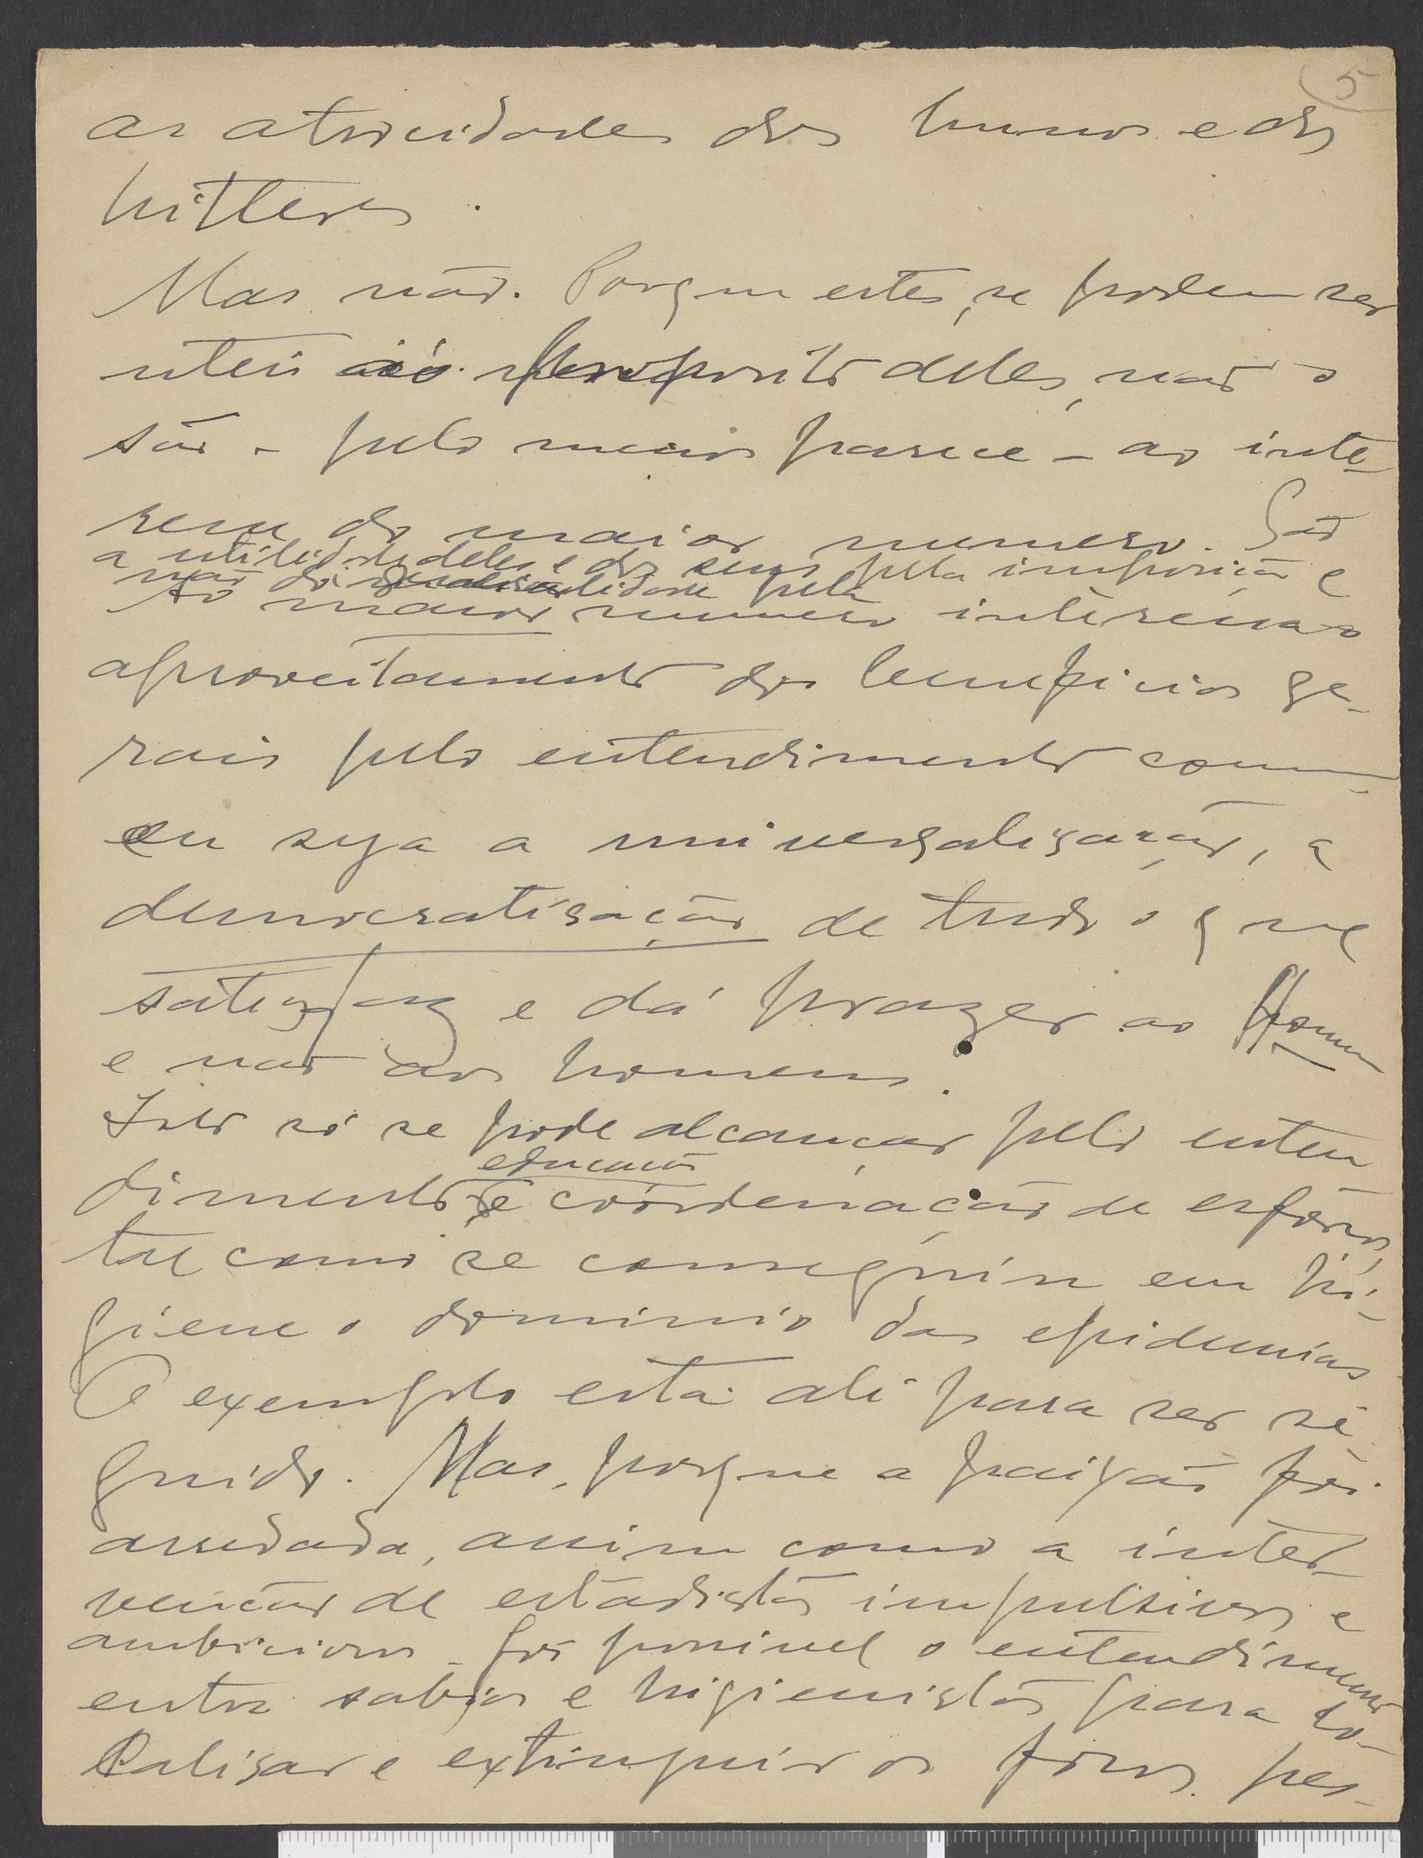 5
as atrocidades dos hunos e dos
hitleres.
Mas não. Porque estes, se podem ser
uteis ao proposito deles, não o
são - pelo menos parece - ao inte-
resse do maior numero. São
a utilidade deles e dos seus pela imposição e
não da utilidade pela
Ao maior numero interessa o
aproveitamento dos beneficios ge-
rais pelo entendimento comum,
ou seja a universalisação, a
democratisação de tudo o que
satisfaz e dá prazer ao Homem
e não aos homens.
Isto só se pode alcançar pelo enten
dimento educação e coórdenação de esforços,
tal como se conseguiu em hi-
giene o dominio das epidemias
O exemplo está ali para ser se-
guido. Mas, porque a paixão foi
arredada, assim como a inter-
venção de estadistas impulsivos e
ambiciosos - foi possivel o entendimento
entre sabios e higienistas para lo-
calisar e extinguir os fócos pes-